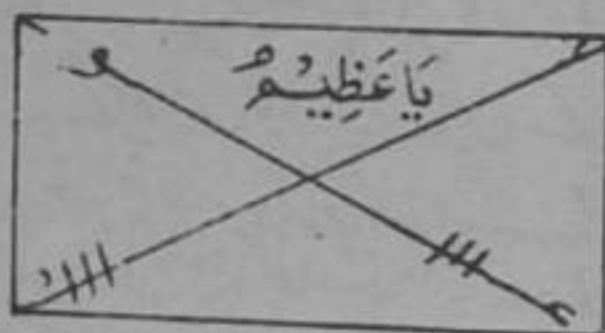 يَا عَظِيْمُ